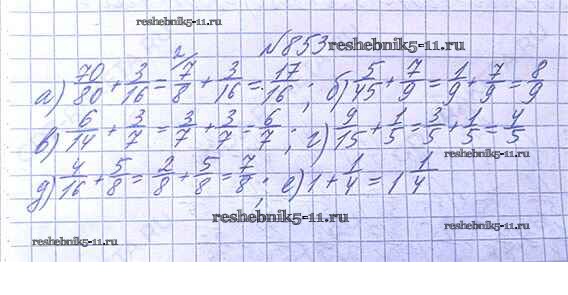 reshebnik5-11.ru
№853 reshebnik5-11.ru
а) 70/80 + 3/16 = 7/8 + 3/16 = 17/16; б) 5/45 + 7/9 = 1/9 + 7/9 = 8/9
в) 6/14 + 3/7 = 3/7 + 3/7 = 6/7; г) 9/15 + 1/5 = 3/5 + 1/5 = 4/5
д) 4/16 + 5/8 = 2/8 + 5/8 = 7/8; е) 1 + 1/4 = 1 1/4
reshebnik5-11.ru
reshebnik5-11.ru reshebnik5-11.ru